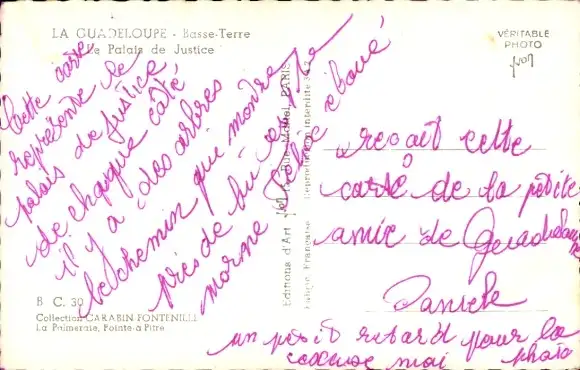 LA GUADELOUPE - Basse-Terre
Le Palais de Justice
VÉRITABLE
PHOTO
Yvon
Cette carte
représente le
palais de Justice
de chaque côté
il y a des arbres
le chemin que montre
près de
morne
éboué
Editions d'Art Yvon, PARIS
Fabriqué Française Reproduction interdite
B C. 30
Collection CARABIN-FONTENILLE
La Palmeraie, Pointe-à-Pitre
reçoit cette
carte de la petite
amie de Guadeloupe
Daniele
un petit retard pour la
photo
excuse moi